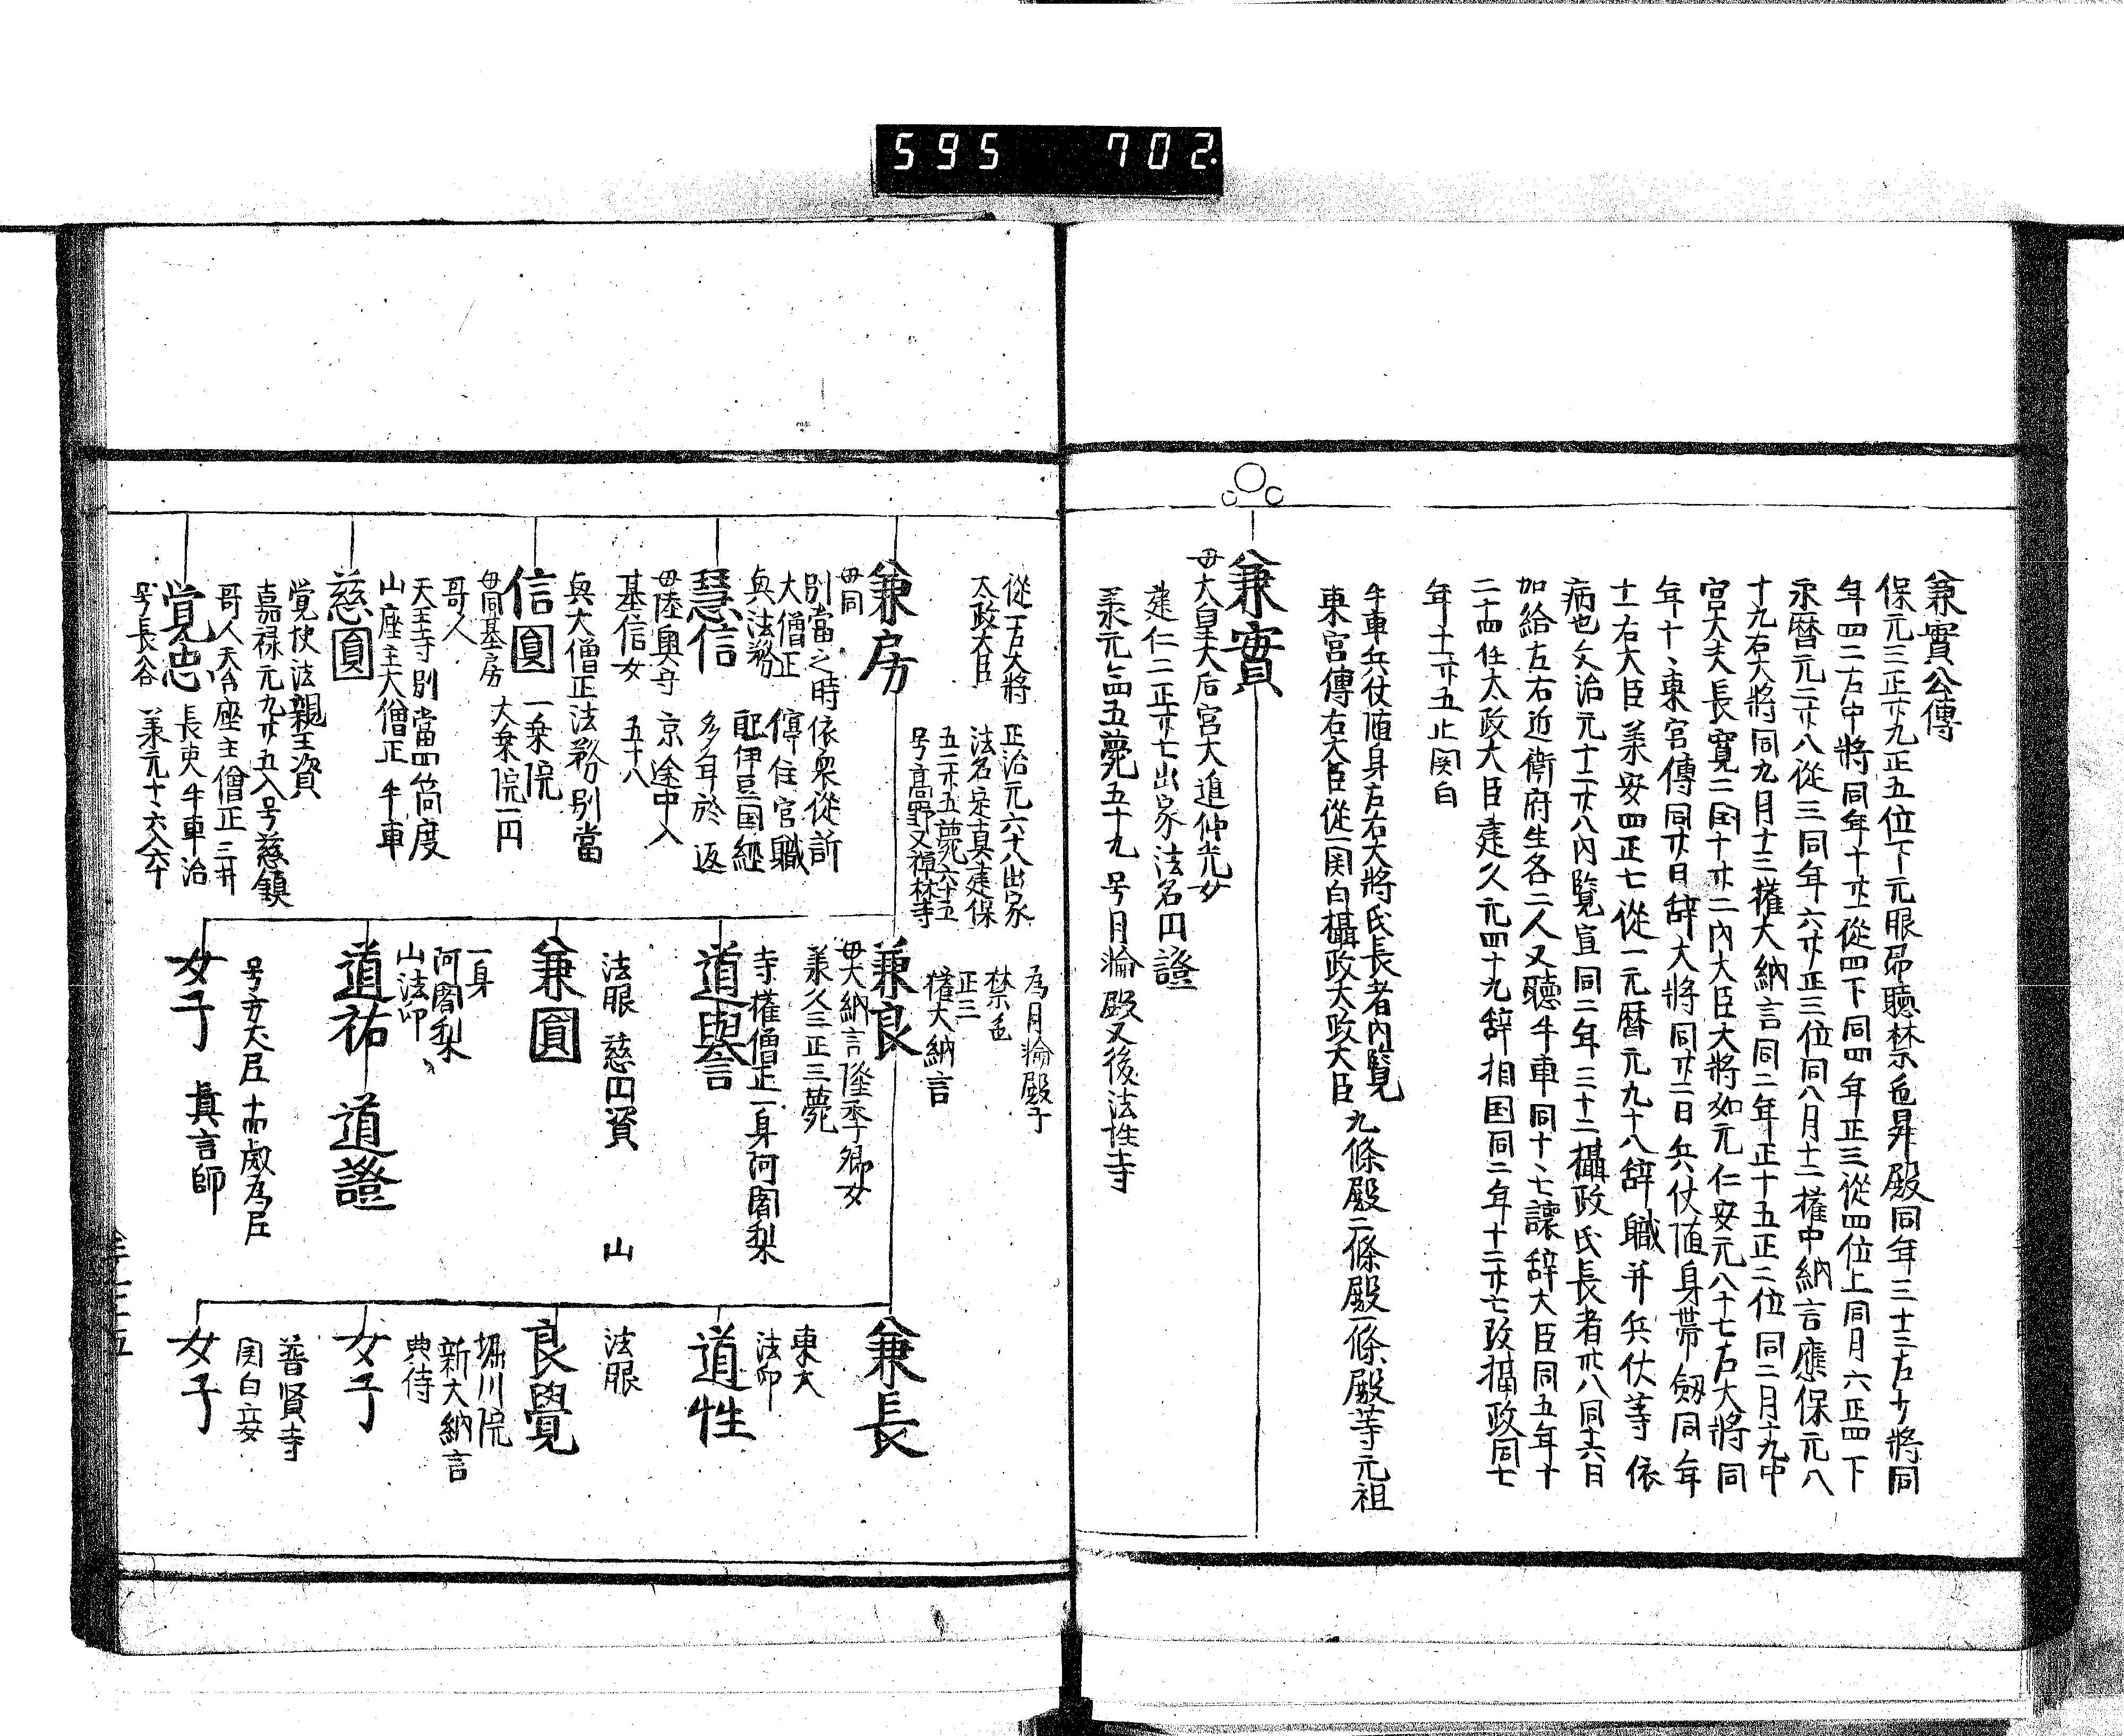 595 702
兼實公傳
保元三正廿九正五位下元服昇聽禁色昇殿同年三十三右少將同
年四二右中將同年十廿一從四下同四年正三從四位上同月六正四下
永暦元二廿八從三同年六廿正三位同八月十二權中納言應保元八
十九右大將同九月十三權大納言同二年正十五正二位同二月十九中
宮大夫長寛二閏十廿二內大臣大將如元仁安元八廿七右大將同
年十、東宮傅同廿日辞大將同廿二日兵仗随身帯劔同年
十一右大臣羕安四正七從一元暦元九十八辞職并兵仗等依
病也文治元十二廿八內覧宣同二年三十二攝政氏長者廿八同十六日
加給左右近衛府生各二人又聽牛車同十、七讓辞大臣同五年十
二十四任太政大臣建久元四十九辞相国同二年十二廿七改攝政同七
年十一廿五止関白
牛車兵仗随身左右大將氏長者內覧
東宮傅右大臣從一関白攝政太政大臣
九條殿二條殿一條殿等元祖
兼實
母大皇大后宮大進仲光女
建仁二正廿七出家法名円證
羕元元四五薨五十九 号月輪殿又後法性寺
為月輪殿子
禁色
正三
權大納言
從一右大將
太政大臣
正治元六十八出家
法名定真建保
五二廿五薨六十五
号高野又禅林寺
兼房
母同
別當之時依衆徒訴
大僧正 停任官職
與法務 配伊豆国經
多年於返
慧信
母陸奥守 京途中入
基信女 五十八
與大僧正法務別當
信圓
一乗院
母同基房 大乗院一円
哥人
天王寺別當四箇度
山座主大僧正 牛車
慈圓
覚快法親王資
嘉禄元九廿五入号慈鎮
哥人天台座主僧正三井
覚忠
長吏牛車治
号長谷 羕元十六入六十
兼良
母大納言隆季卿女
羕久三正三薨
寺權僧正一身阿闍梨
道譽
法眼 慈円資 山
兼圓
一身
阿闍梨
山法印
道祐
道證
号方丈尼 十而歳為尼
女子
眞言師
兼長
東大
法印
道性
法眼
良覺
堀川院
新大納言
典侍
女子
普賢寺
関白妾
女子